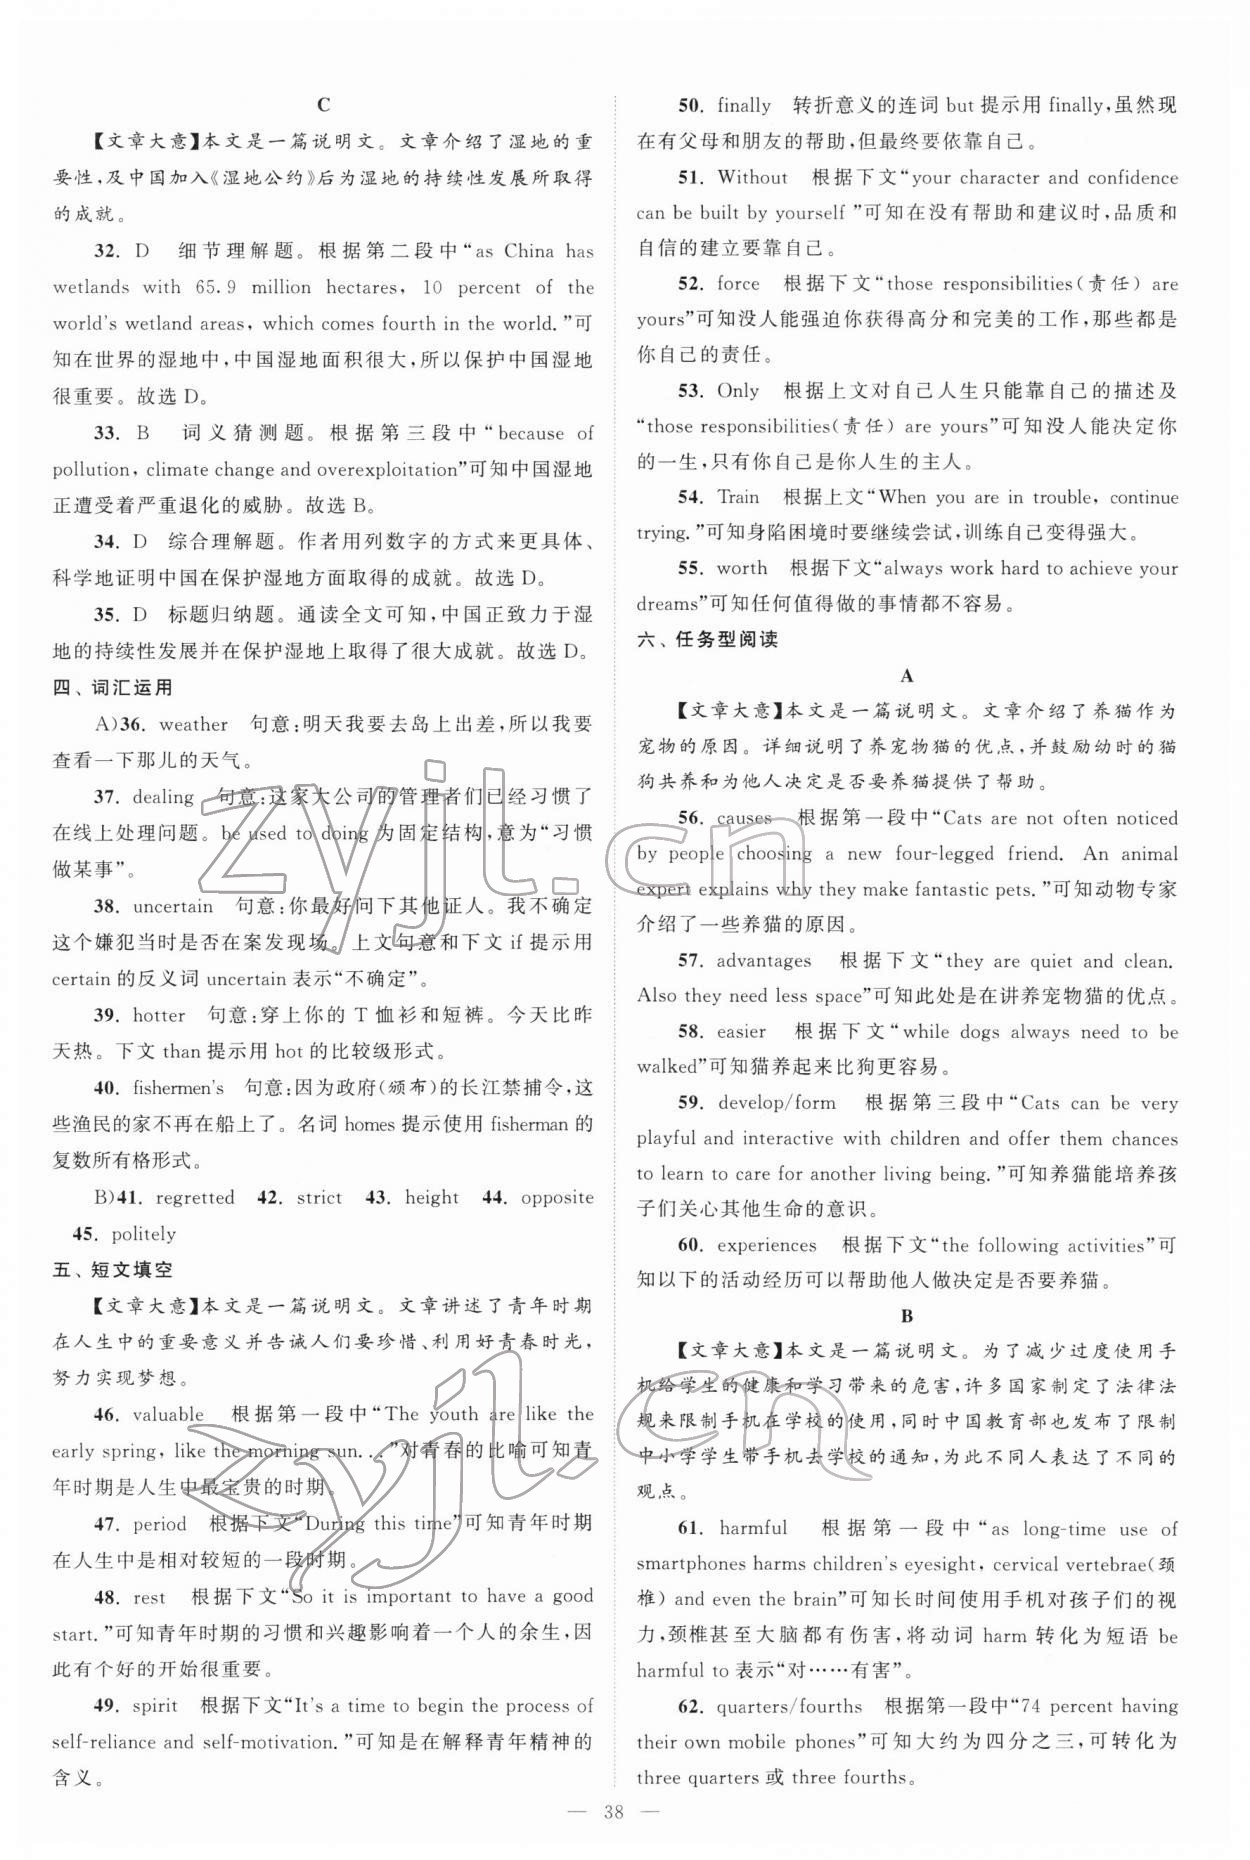 C
【文章大意】本文是一篇说明文。文章介绍了湿地的重
要性,及中国加入《湿地公约》后为湿地的持续性发展所取得
的成就。
32. D 细节理解题。根据第二段中“as China has
wetlands with 65.9 million hectares, 10 percent of the
world's wetland areas, which comes fourth in the world.”可
知在世界的湿地中,中国湿地面积很大,所以保护中国湿地
很重要。故选 D。
33. B 词义猜测题。根据第三段中“because of
pollution, climate change and overexploitation”可知中国湿地
正遭受着严重退化的威胁。故选 B。
34. D 综合理解题。作者用列数字的方式来更具体、
科学地证明中国在保护湿地方面取得的成就。故选 D。
35. D 标题归纳题。通读全文可知,中国正致力于湿
地的持续性发展并在保护湿地上取得了很大成就。故选 D。
四、词汇运用
A)36. weather 句意:明天我要去岛上出差,所以我要
查看一下那儿的天气。
37. dealing 句意:这家大公司的管理者们已经习惯了
在线上处理问题。be used to doing 为固定结构,意为“习惯
做某事”。
38. uncertain 句意:你最好问下其他证人。我不确定
这个嫌犯当时是否在案发现场。上文句意和下文 if 提示用
certain 的反义词 uncertain 表示“不确定”。
39. hotter 句意:穿上你的 T 恤衫和短裤。今天比昨
天热。下文 than 提示用 hot 的比较级形式。
40. fishermen's 句意:因为政府(颁布)的长江禁捕令,这
些渔民的家不再在船上了。名词 homes 提示使用 fisherman 的
复数所有格形式。
B)41. regretted 42. strict 43. height 44. opposite
45. politely
五、短文填空
【文章大意】本文是一篇说明文。文章讲述了青年时期
在人生中的重要意义并告诫人们要珍惜、利用好青春时光,
努力实现梦想。
46. valuable 根据第一段中“The youth are like the
early spring, like the morning sun...”对青春的比喻可知青
年时期是人生中最宝贵的时期。
47. period 根据下文“During this time”可知青年时期
在人生中是相对较短的一段时期。
48. rest 根据下文“So it is important to have a good
start.”可知青年时期的习惯和兴趣影响着一个人的余生,因
此有个好的开始很重要。
49. spirit 根据下文“It's a time to begin the process of
self-reliance and self-motivation.”可知是在解释青年精神的
含义。
50. finally 转折意义的连词 but 提示用 finally,虽然现
在有父母和朋友的帮助,但最终要依靠自己。
51. Without 根据下文“your character and confidence
can be built by yourself ”可知在没有帮助和建议时,品质和
自信的建立要靠自己。
52. force 根据下文“those responsibilities(责任) are
yours”可知没人能强迫你获得高分和完美的工作,那些都是
你自己的责任。
53. Only 根据上文对自己人生只能靠自己的描述及
“those responsibilities(责任) are yours”可知没人能决定你
的一生,只有你自己是你人生的主人。
54. Train 根据上文“When you are in trouble, continue
trying.”可知身陷困境时要继续尝试,训练自己变得强大。
55. worth 根据下文“always work hard to achieve your
dreams”可知任何值得做的事情都不容易。
六、任务型阅读
A
【文章大意】本文是一篇说明文。文章介绍了养猫作为
宠物的原因。详细说明了养宠物猫的优点,并鼓励幼时的猫
狗共养和为他人决定是否要养猫提供了帮助。
56. causes 根据第一段中“Cats are not often noticed
by people choosing a new four-legged friend. An animal
expert explains why they make fantastic pets.”可知动物专家
介绍了一些养猫的原因。
57. advantages 根据下文“they are quiet and clean.
Also they need less space”可知此处是在讲养宠物猫的优点。
58. easier 根据下文“while dogs always need to be
walked”可知猫养起来比狗更容易。
59. develop/form 根据第三段中“Cats can be very
playful and interactive with children and offer them chances
to learn to care for another living being.”可知养猫能培养孩
子们关心其他生命的意识。
60. experiences 根据下文“the following activities”可
知以下的活动经历可以帮助他人做决定是否要养猫。
B
【文章大意】本文是一篇说明文。为了减少过度使用手
机给学生的健康和学习带来的危害,许多国家制定了法律法
规来限制手机在学校的使用,同时中国教育部也发布了限制
中小学学生带手机去学校的通知,为此不同人表达了不同的
观点。
61. harmful 根据第一段中“as long-time use of
smartphones harms children's eyesight, cervical vertebrae(颈
椎) and even the brain”可知长时间使用手机对孩子们的视
力,颈椎甚至大脑都有伤害,将动词 harm 转化为短语 be
harmful to 表示“对……有害”。
62. quarters/fourths 根据第一段中“74 percent having
their own mobile phones”可知大约为四分之三,可转化为
three quarters 或 three fourths。
— 38 —
zyjl.cn
zyjl.cn